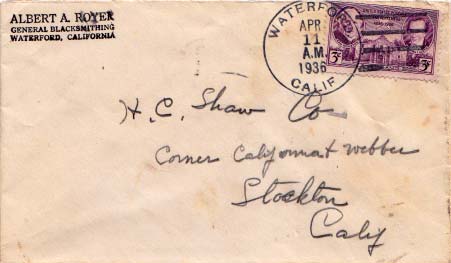 ALBERT A. ROYER
GENERAL BLACKSMITHING
WATERFORD, CALIFORNIA
WATERFORD
APR
11
A.M.
1936
CALIF
3¢ 3¢
H. C. Shaw Co
Corner California & Webber
Stockton
Calif